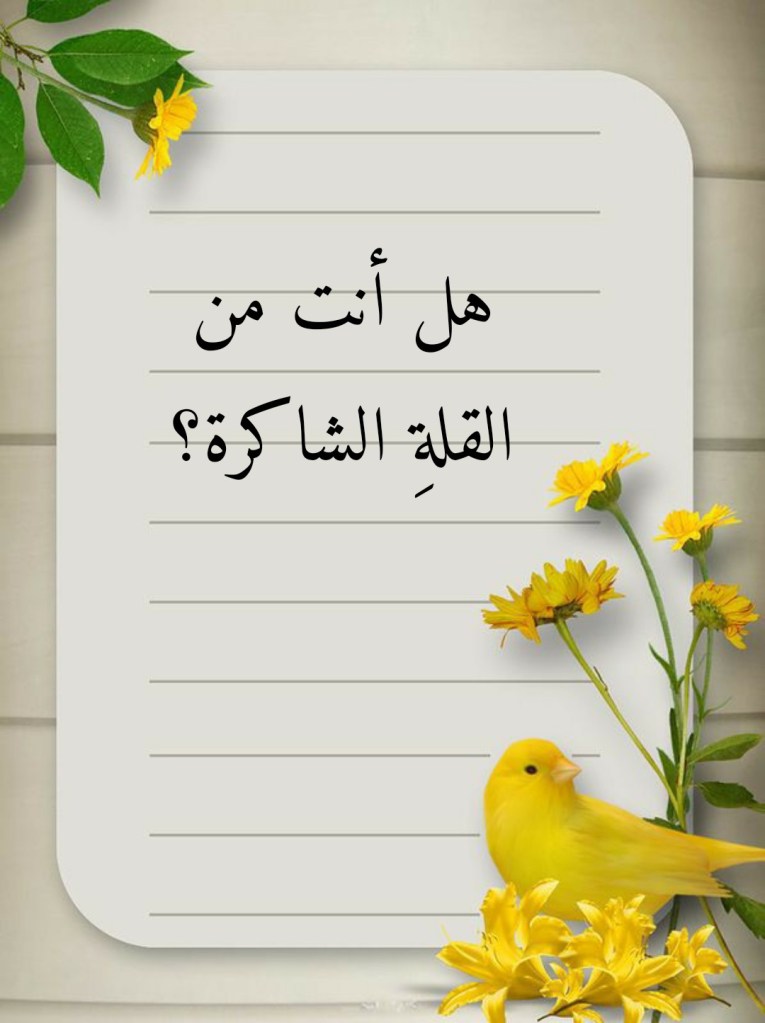 هل أنت من
القلةِ الشاكرة؟